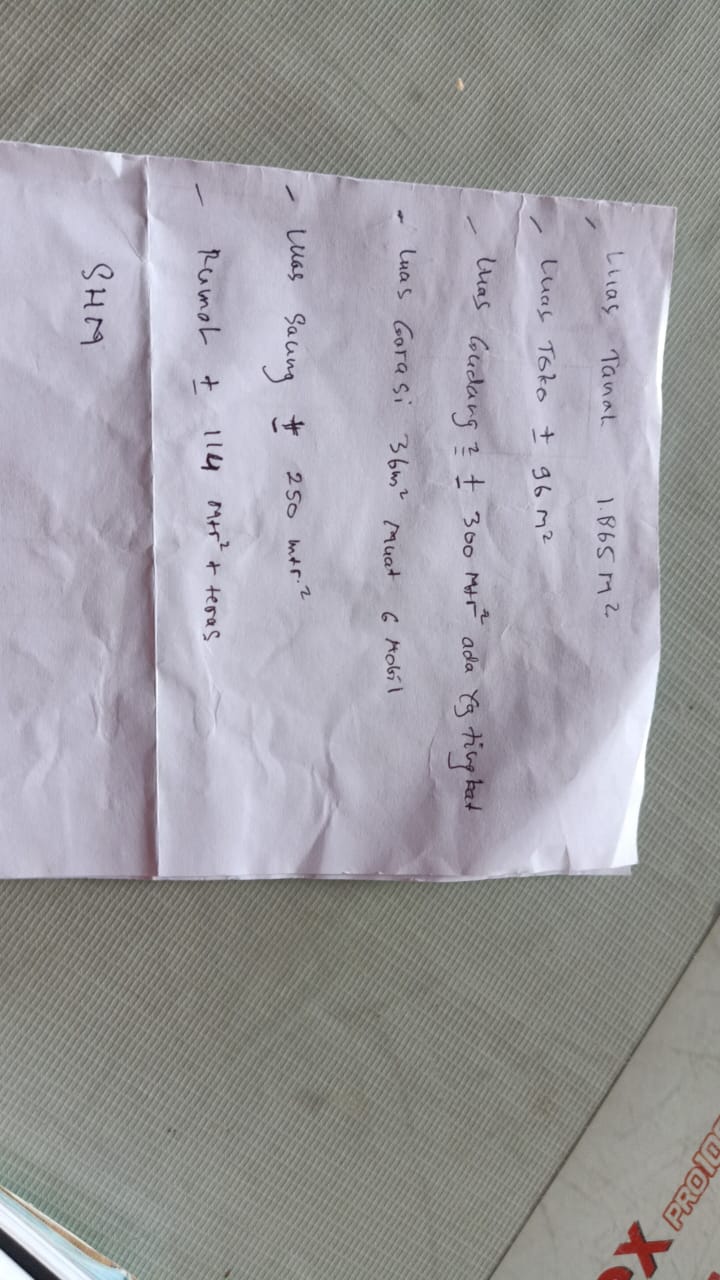 - Luas Tanah 1.865 M²
- Luas Toko ± 96 m²
- Luas Gudang² ± 300 Mtr² ada yg tingkat
- Luas Garasi 36m² Muat 6 Mobil
- Luas Saung ± 250 mtr.²
- Rumah ± 114 Mtr² + teras
SHM
OX PRO10